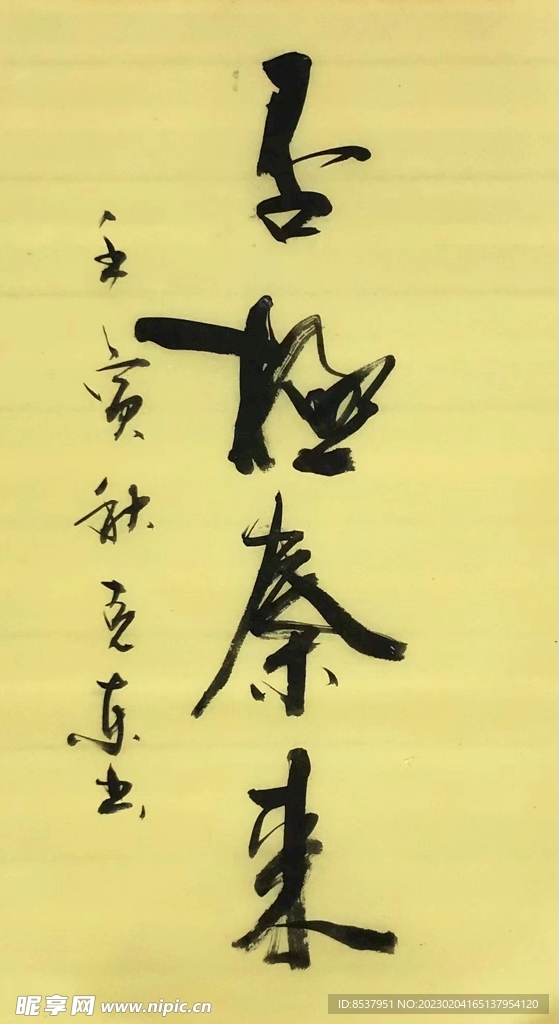 否极泰来
壬寅秋克东书
昵享网 www.nipic.cn
ID:8537951 NO:20230204165137954120